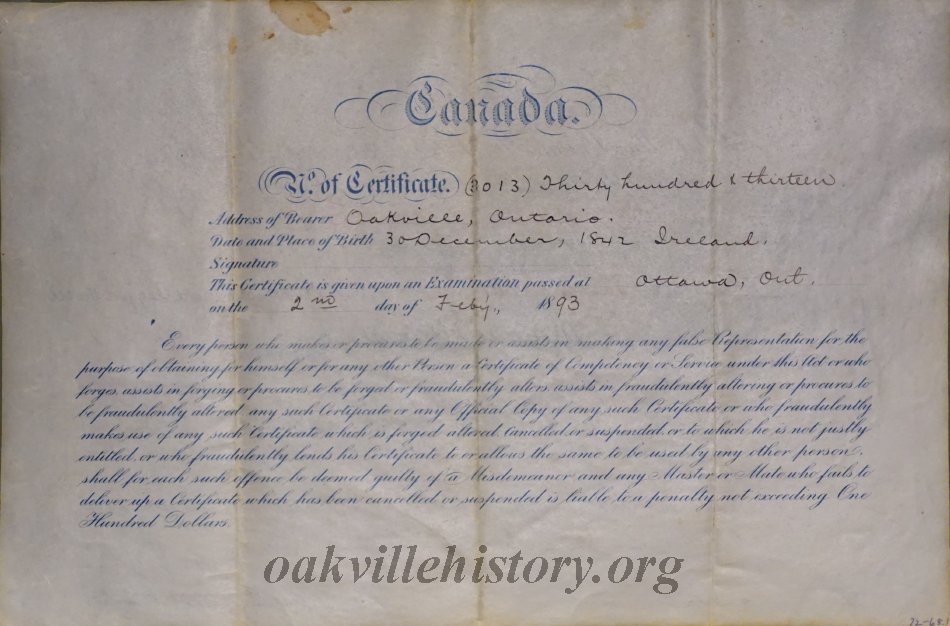 Canada.
No. of Certificate. (3013) Thirty hundred & thirteen
Address of Bearer Oakville, Ontario.
Date and Place of Birth 30 December, 1842 Ireland.
Signature
This Certificate is given upon an Examination passed at Ottawa, Ont.
on the 2nd day of Feby., 1893
Every person who makes or procures to be made or assists in making any false Representation for the
purpose of obtaining for himself or for any other Person a Certificate of Competency or Service under this Act or who
forges assists in forging or procures to be forged or fraudulently alters assists in fraudulently altering or procures to
be fraudulently altered any such Certificate or any Official Copy of any such Certificate or who fraudulently
makes use of any such Certificate which is forged altered Cancelled or suspended or to which he is not justly
entitled or who fraudulently lends his Certificate to or allows the same to be used by any other person,
shall for each such offence be deemed guilty of a Misdemeanor and any Master or Mate who fails to
deliver up a Certificate which has been cancelled or suspended is liable to a penalty not exceeding One
Hundred Dollars.
oakvillehistory.org